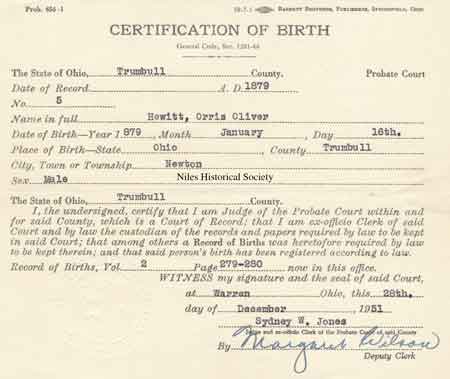 Prob. 656-1 BARRETT BROTHERS, PUBLISHERS, SPRINGFIELD, OHIO
CERTIFICATION OF BIRTH
General Code, Sec. 1261-64
The State of Ohio, Trumbull County. Probate Court
Date of Record A. D. 1879
No. 5
Name in full Hewitt, Orris Oliver
Date of Birth—Year 1879, Month January, Day 16th.
Place of Birth—State Ohio, County Trumbull
City, Town or Township Newton
Sex Male Niles Historical Society
The State of Ohio, Trumbull County.
I, the undersigned, certify that I am Judge of the Probate Court within and
for said County, which is a Court of Record; that I am ex-officio Clerk of said
Court and by law the custodian of the records and papers required by law to be kept
in said Court; that among others a Record of Births was heretofore required by law
to be kept therein; and that said person's birth has been registered according to law.
Record of Births, Vol. 2 Page 279-280 now in this office.
WITNESS my signature and the seal of said Court,
at Warren Ohio, this 28th.
day of December 1951
Sydney W. Jones
Judge and ex-officio Clerk of the Probate Court of said County
By Margaret Wilson
Deputy Clerk